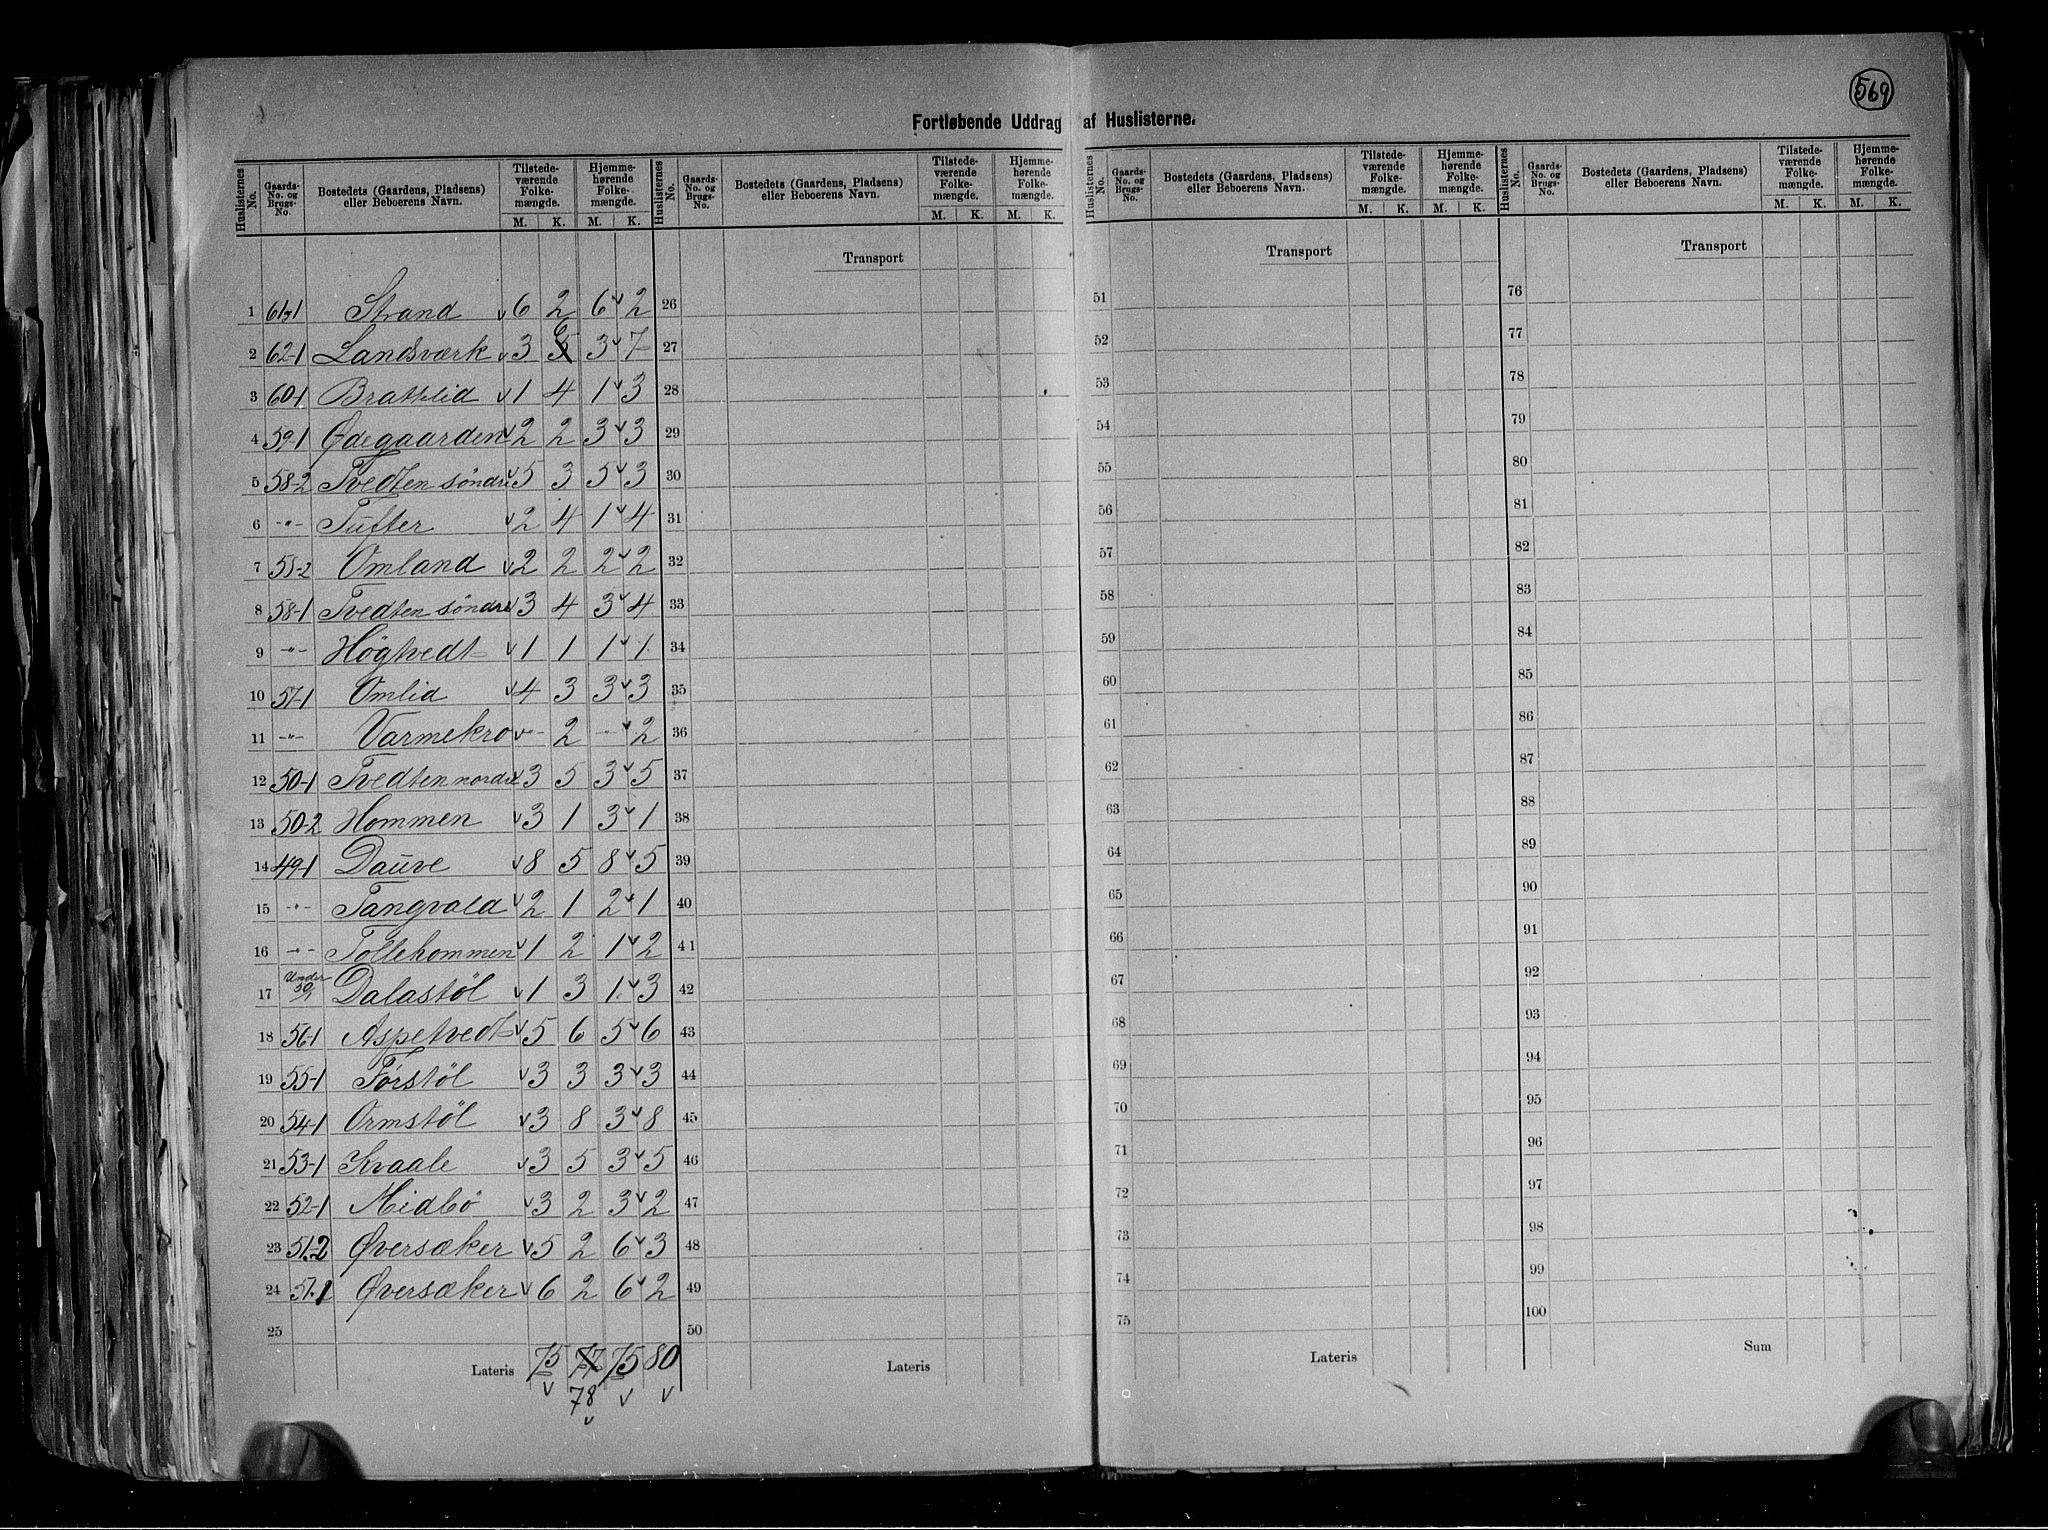 569
Fortløbende Uddrag af Huslisterne.
Huslisternes No. Gaards-No. og Brugs-No. Bostedets (Gaardens, Pladsen) eller Beboerens Navn. Tilstede-værende Folke-mængde. M. K. Hjemme-hørende Folke-mængde. M. K.
Huslisternes No. Gaards-No. og Brugs-No. Bostedets (Gaardens, Pladsen) eller Beboerens Navn. Tilstede-værende Folke-mængde. M. K. Hjemme-hørende Folke-mængde. M. K.
Huslisternes No. Gaards-No. og Brugs-No. Bostedets (Gaardens, Pladsens) eller Beboerens Navn. Tilstede-værende Folke-mængde. M. K. Hjemme-hørende Folke-mængde. M. K.
Huslisternes No. Gaards-No. og Brugs-No. Bostedets (Gaardens, Pladsens) eller Beboerens Navn. Tilstede-værende Folke-mængde. M. K. Hjemme-hørende Folke-mængde. M. K.
Transport Transport Transport
1 61-1 Strand 6 2 6 2 26 51 76
2 62-1 Landsværk 3 6 3 7 27 52 77
3 60-1 Brattlid 1 4 1 3 28 53 78
4 59-1 Ødegaarden 2 2 3 3 29 54 79
5 58-2 Tvedten söndre 5 3 5 3 30 55 80
6 -"- Tufter 2 4 1 4 31 56 81
7 58-2 Omland 2 2 2 2 32 57 82
8 58-1 Tvedten söndre 3 4 3 4 33 58 83
9 -"- Högtvedt 1 1 1 1 34 59 84
10 57-1 Omlid 4 3 3 3 35 60 85
11 -"- Varmekro - 2 - 2 36 61 86
12 50-1 Tvedten nordre 3 5 3 5 37 62 87
13 50-2 Hommen 3 1 3 1 38 63 88
14 49-1 Dauve 8 5 8 5 39 64 89
15 -"- Tangvald 2 1 2 1 40 65 90
16 -"- Tollehommen 1 2 1 2 41 66 91
17 Under 50/1 Dalastöl 1 3 1 3 42 67 92
18 56-1 Aspetvedt 5 6 5 6 43 68 93
19 55-1 Förstöl 3 3 3 3 44 69 94
20 54-1 Ormstöl 3 8 3 8 45 70 95
21 53-1 Kvaale 3 5 3 5 46 71 96
22 52-1 Midbö 3 2 3 2 47 72 97
23 51-2 Øversæker 5 2 6 3 48 73 98
24 51-1 Øversæker 6 2 6 2 49 74 99
25 50 75 100
Lateris 75 77 75 80 Lateris Lateris Sum
78